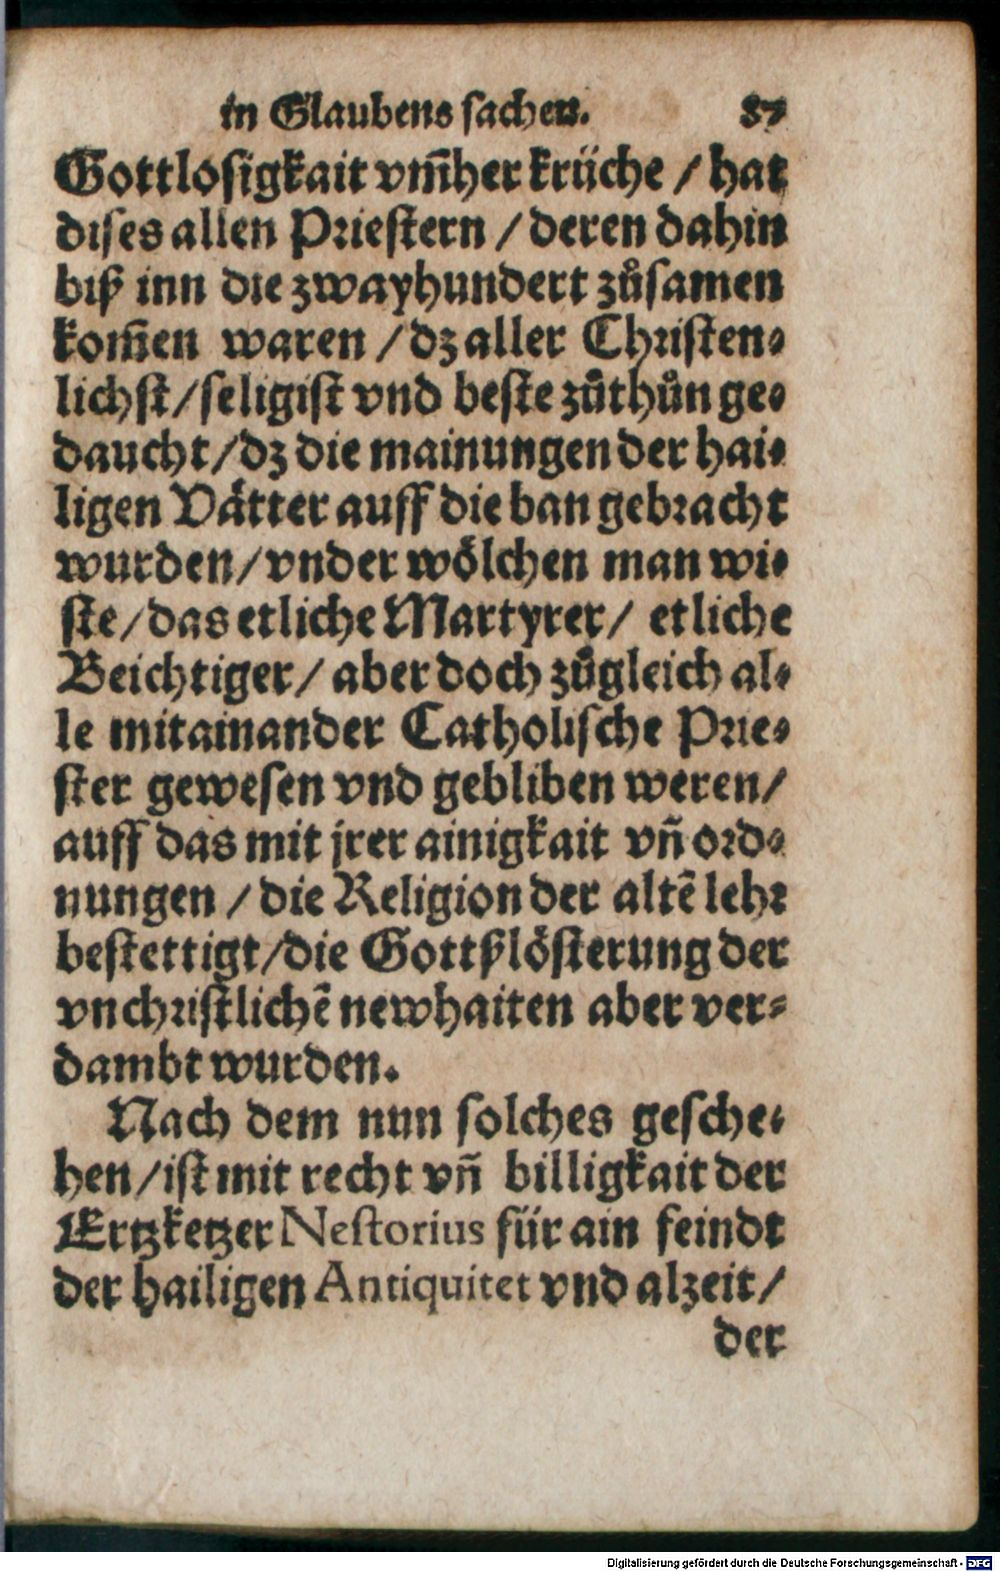 in Glaubens sachen. 87
Gottlosigkait vm̄her krüche / hat
dises allen Priestern / deren dahin
biß inn die zwayhundert zůsamen
kom̄en waren / dz aller Christen-
lichst / seligist vnd beste zůthůn ge-
daucht / dz die mainungen der hai-
ligen Vätter auff die ban gebracht
wurden / vnder wölchen man wi-
ste / das etliche Martyrer / etliche
Beichtiger / aber doch zůgleich al-
le mitainander Catholische Prie-
ster gewesen vnd gebliben weren /
auff das mit jrer ainigkait vn̄ ord-
nungen / die Religion der altē lehr
bestettigt / die Gottßlösterung der
vnchristlichē newhaiten aber ver-
dambt wurden.
Nach dem nun solches gesche-
hen / ist mit recht vn̄ billigkait der
Ertzketzer Nestorius für ain feindt
der hailigen Antiquitet vnd alzeit /
der
Digitalisierung gefördert durch die Deutsche Forschungsgemeinschaft - DFG